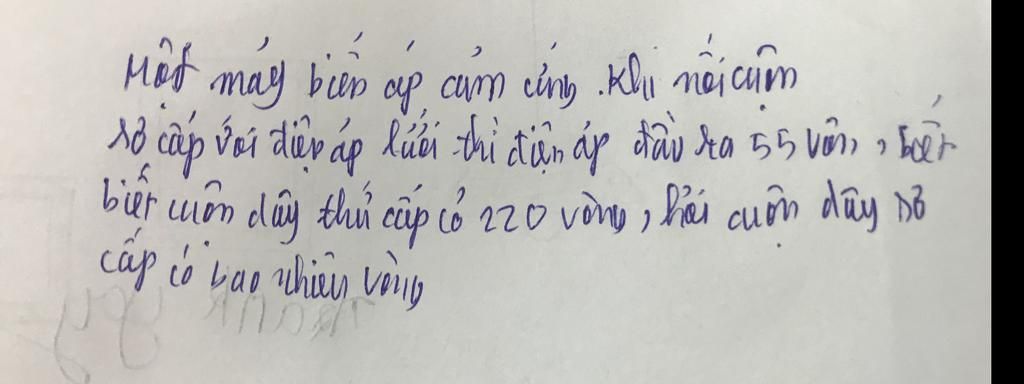 Một máy biến áp cảm ứng. Khi nối cuộn
sơ cấp với điện áp lưới thì điện áp đầu ra 55 vôn, biết
biết cuôn dây thứ cấp có 220 vòng, hỏi cuộn dây sơ
cấp có bao nhiên vòng